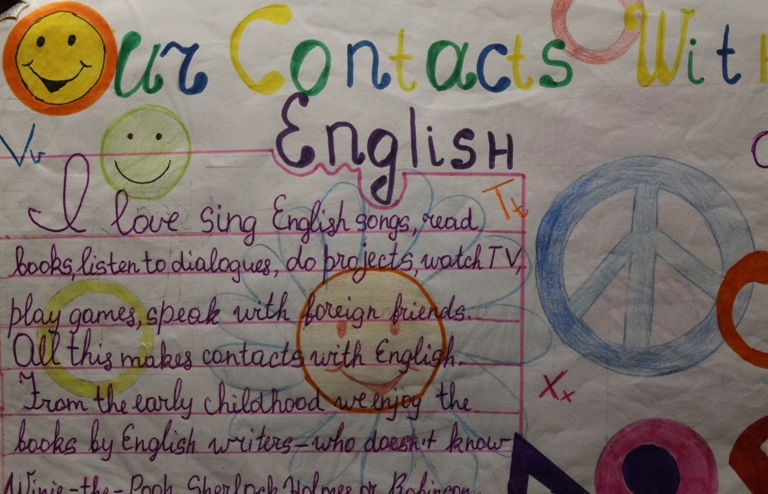 Our Contacts With
English
Vv
I love sing English songs, read
Tt
books, listen to dialogues, do projects, watch TV,
play games, speak with foreign friends.
All this makes contacts with English.
Xx
From the early childhood we enjoy the
books by English writers – who doesn't know
Winie-the-Pooh, Sherlock Holmes or Robinson